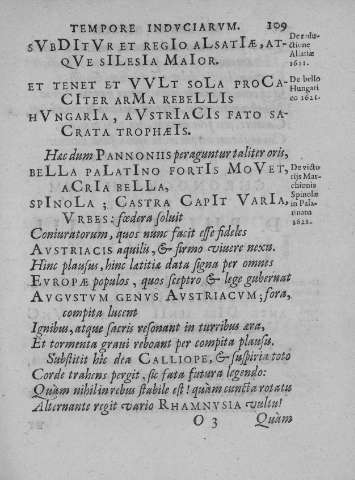 TEMPORE INDVCIARVM. 109
SVBDITVR ET REGIO ALSATIÆ, AT-
QVE SILESIA MAIOR.
De reductione Alsatiæ 1621.
ET TENET ET VVLT SOLA PROCA-
CITER ARMA REBELLIS
HVNGARIA, AVSTRIACIS FATO SA-
CRATA TROPHÆIS.
De bello Hungarico 1621.
Hæc dum PANNONIIS peraguntur taliter oris,
BELLA PALATINO FORTIS MOVET,
ACRIA BELLA,
SPINOLA; CASTRA CAPIT VARIA,
VRBES: fœdera soluit
De victorijs Marchionis Spinolæ in Palatinatu 1621.
Coniuratorum, quos nunc facit esse fideles
AVSTRIACIS aquilis, & firmo viuere nexu.
Hinc plausus, hinc latitiæ data signa per omnes
EVROPÆ populos, quos sceptro & lege gubernat
AVGVSTVM GENVS AVSTRIACVM; fora,
compita lucent
Ignibus, atque sacris resonant in turribus æra,
Et tormenta graui reboant per compita plausu.
Substitit hic dea CALLIOPE, & suspiria toto
Corde trahens pergit, sic fata futura legendo:
Quàm nihil in rebus stabile est! quàm cuncta rotatu
Alternante regit vario RHAMNVSIA vultu!
O 3 Quàm